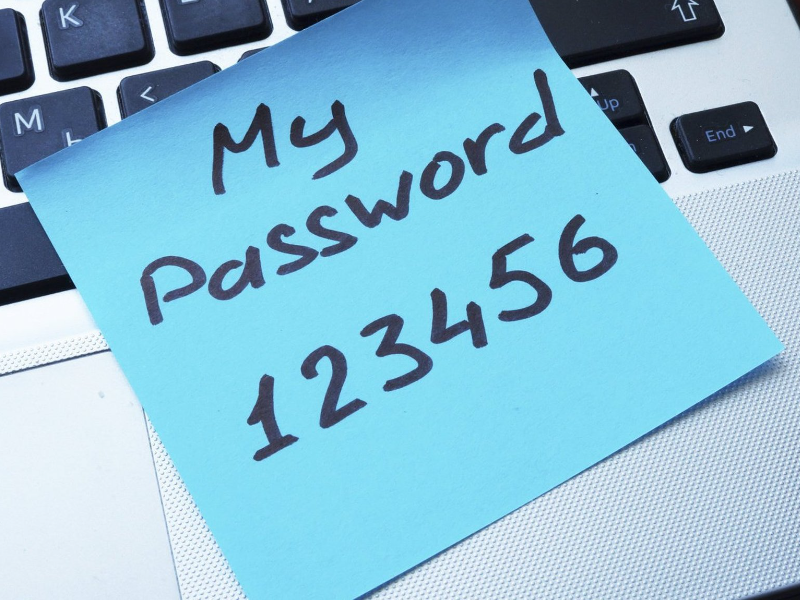 K
M
Ь
<
Up
End ►
My
Password
123456